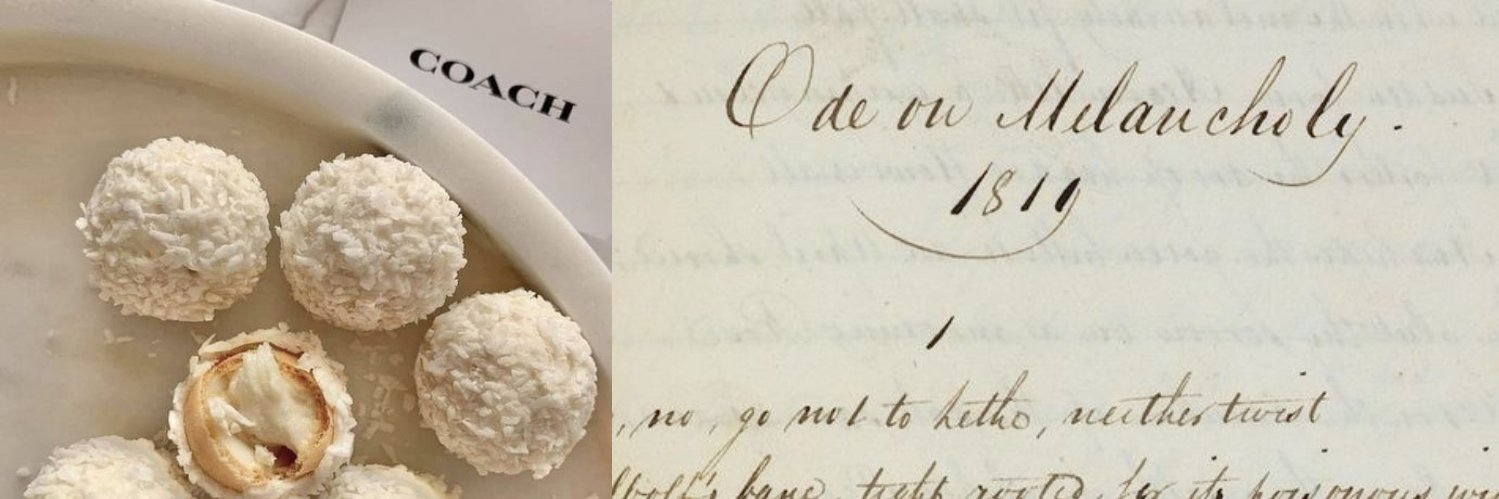 COACH
Ode on Melancholy.
1819
1
, no, go not to Lethe, neither twist
bane, tight rooted, for its poisonous